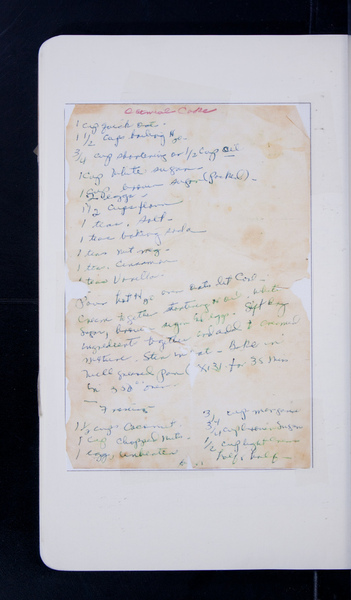 Oatmeal Cake
1 cup quick oats.
1 1/2 cups boiling H2o.
3/4 cup shortening or 1/2 cup oil
1 cup white sugar
1 cup brown sugar (packed).
2 eggs.
1 1/2 cups flour
1 teas. salt.
1 teas baking soda
1 teas nutmeg.
1 tea. Cinnamon
1 teas Vanilla.
Pour hot H2o over oats let cool.
Cream together shortening or oil, white
sugar, brown sugar & eggs. Sift dry
ingredient together and add to creamed
mixture. Stir in oat. Bake in
well greased pan for 35 min
Frosting
1 1/2 cups Coconut
1 cup chopped nuts
1 egg, unbeaten
3/4 cup margarine
3/4 cup brown sugar
1/2 cup light cream
half & half.